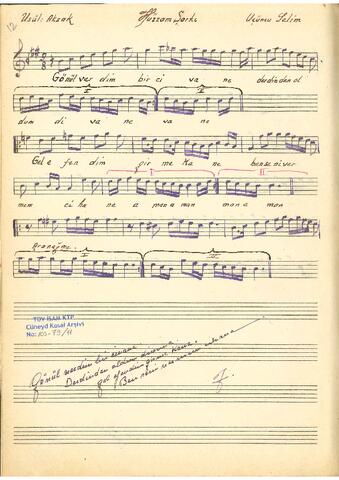 12
Usûl: Aksak Hüzzam Şarkı Üçüncü Selim
Gönül ver dim bir ci va ne derdinden ol
I II
dum di va ne va ne
Gel e fen dim gir me ka ne ben se ni ver
I II
mem ci ha ne a man a man man a man
Aranağme:
I II
TDV İSAM KTP
Cüneyd Kosal Arşivi
No:
Gönül verdim bir civane
Derdinden oldum divane